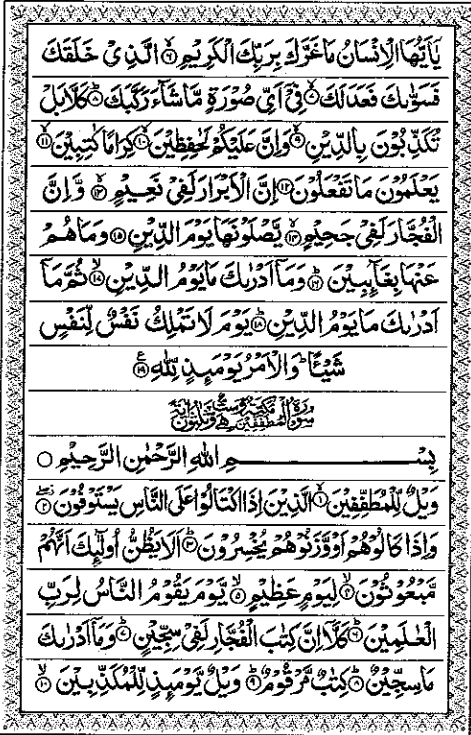 يٰۤاَيُّهَا الْاِنْسَانُ مَا غَرَّكَ بِرَبِّكَ الْكَرِيْمِ ۙ﴿۶﴾ الَّذِيْ خَلَقَكَ
فَسَوّٰىكَ فَعَدَلَكَ ۙ﴿۷﴾ فِيْۤ اَيِّ صُوْرَةٍ مَّا شَآءَ رَكَّبَكَ ؕ﴿۸﴾ كَلَّا بَلْ
تُكَذِّبُوْنَ بِالدِّيْنِ ۙ﴿۹﴾ وَاِنَّ عَلَيْكُمْ لَحٰفِظِيْنَ ۙ﴿۱۰﴾ كِرَامًا كٰتِبِيْنَ ۙ﴿۱۱﴾
يَعْلَمُوْنَ مَا تَفْعَلُوْنَ ﴿۱۲﴾ اِنَّ الْاَبْرَارَ لَفِيْ نَعِيْمٍ ۚ﴿۱۳﴾ وَّاِنَّ
الْفُجَّارَ لَفِيْ جَحِيْمٍ ۚۖ﴿۱۴﴾ يَّصْلَوْنَهَا يَوْمَ الدِّيْنِ ﴿۱۵﴾ وَمَا هُمْ
عَنْهَا بِغَآئِبِيْنَ ؕ﴿۱۶﴾ وَمَاۤ اَدْرٰىكَ مَا يَوْمُ الدِّيْنِ ۙ﴿۱۷﴾ ثُمَّ مَاۤ
اَدْرٰىكَ مَا يَوْمُ الدِّيْنِ ؕ﴿۱۸﴾ يَوْمَ لَا تَمْلِكُ نَفْسٌ لِّنَفْسٍ
شَيْئًا ؕ وَالْاَمْرُ يَوْمَئِذٍ لِّلّٰهِ ﴿۱۹﴾ ع
سُوْرَةُ الْمُطَفِّفِيْنَ مَكِّيَّةٌ وَّهِيَ سِتٌّ وَّثَلٰثُوْنَ اٰيَةً
بِسْمِ اللّٰهِ الرَّحْمٰنِ الرَّحِيْمِ ۝
وَيْلٌ لِّلْمُطَفِّفِيْنَ ۙ﴿۱﴾ الَّذِيْنَ اِذَا اكْتَالُوْا عَلَى النَّاسِ يَسْتَوْفُوْنَ ۖ﴿۲﴾
وَاِذَا كَالُوْهُمْ اَوْ وَّزَنُوْهُمْ يُخْسِرُوْنَ ؕ﴿۳﴾ اَلَا يَظُنُّ اُولٰٓئِكَ اَنَّهُمْ
مَّبْعُوْثُوْنَ ۙ﴿۴﴾ لِيَوْمٍ عَظِيْمٍ ۙ﴿۵﴾ يَّوْمَ يَقُوْمُ النَّاسُ لِرَبِّ
الْعٰلَمِيْنَ ؕ﴿۶﴾ كَلَّاۤ اِنَّ كِتٰبَ الْفُجَّارِ لَفِيْ سِجِّيْنٍ ؕ﴿۷﴾ وَمَاۤ اَدْرٰىكَ
مَا سِجِّيْنٌ ؕ﴿۸﴾ كِتٰبٌ مَّرْقُوْمٌ ؕ﴿۹﴾ وَيْلٌ يَّوْمَئِذٍ لِّلْمُكَذِّبِيْنَ ۙ﴿۱۰﴾